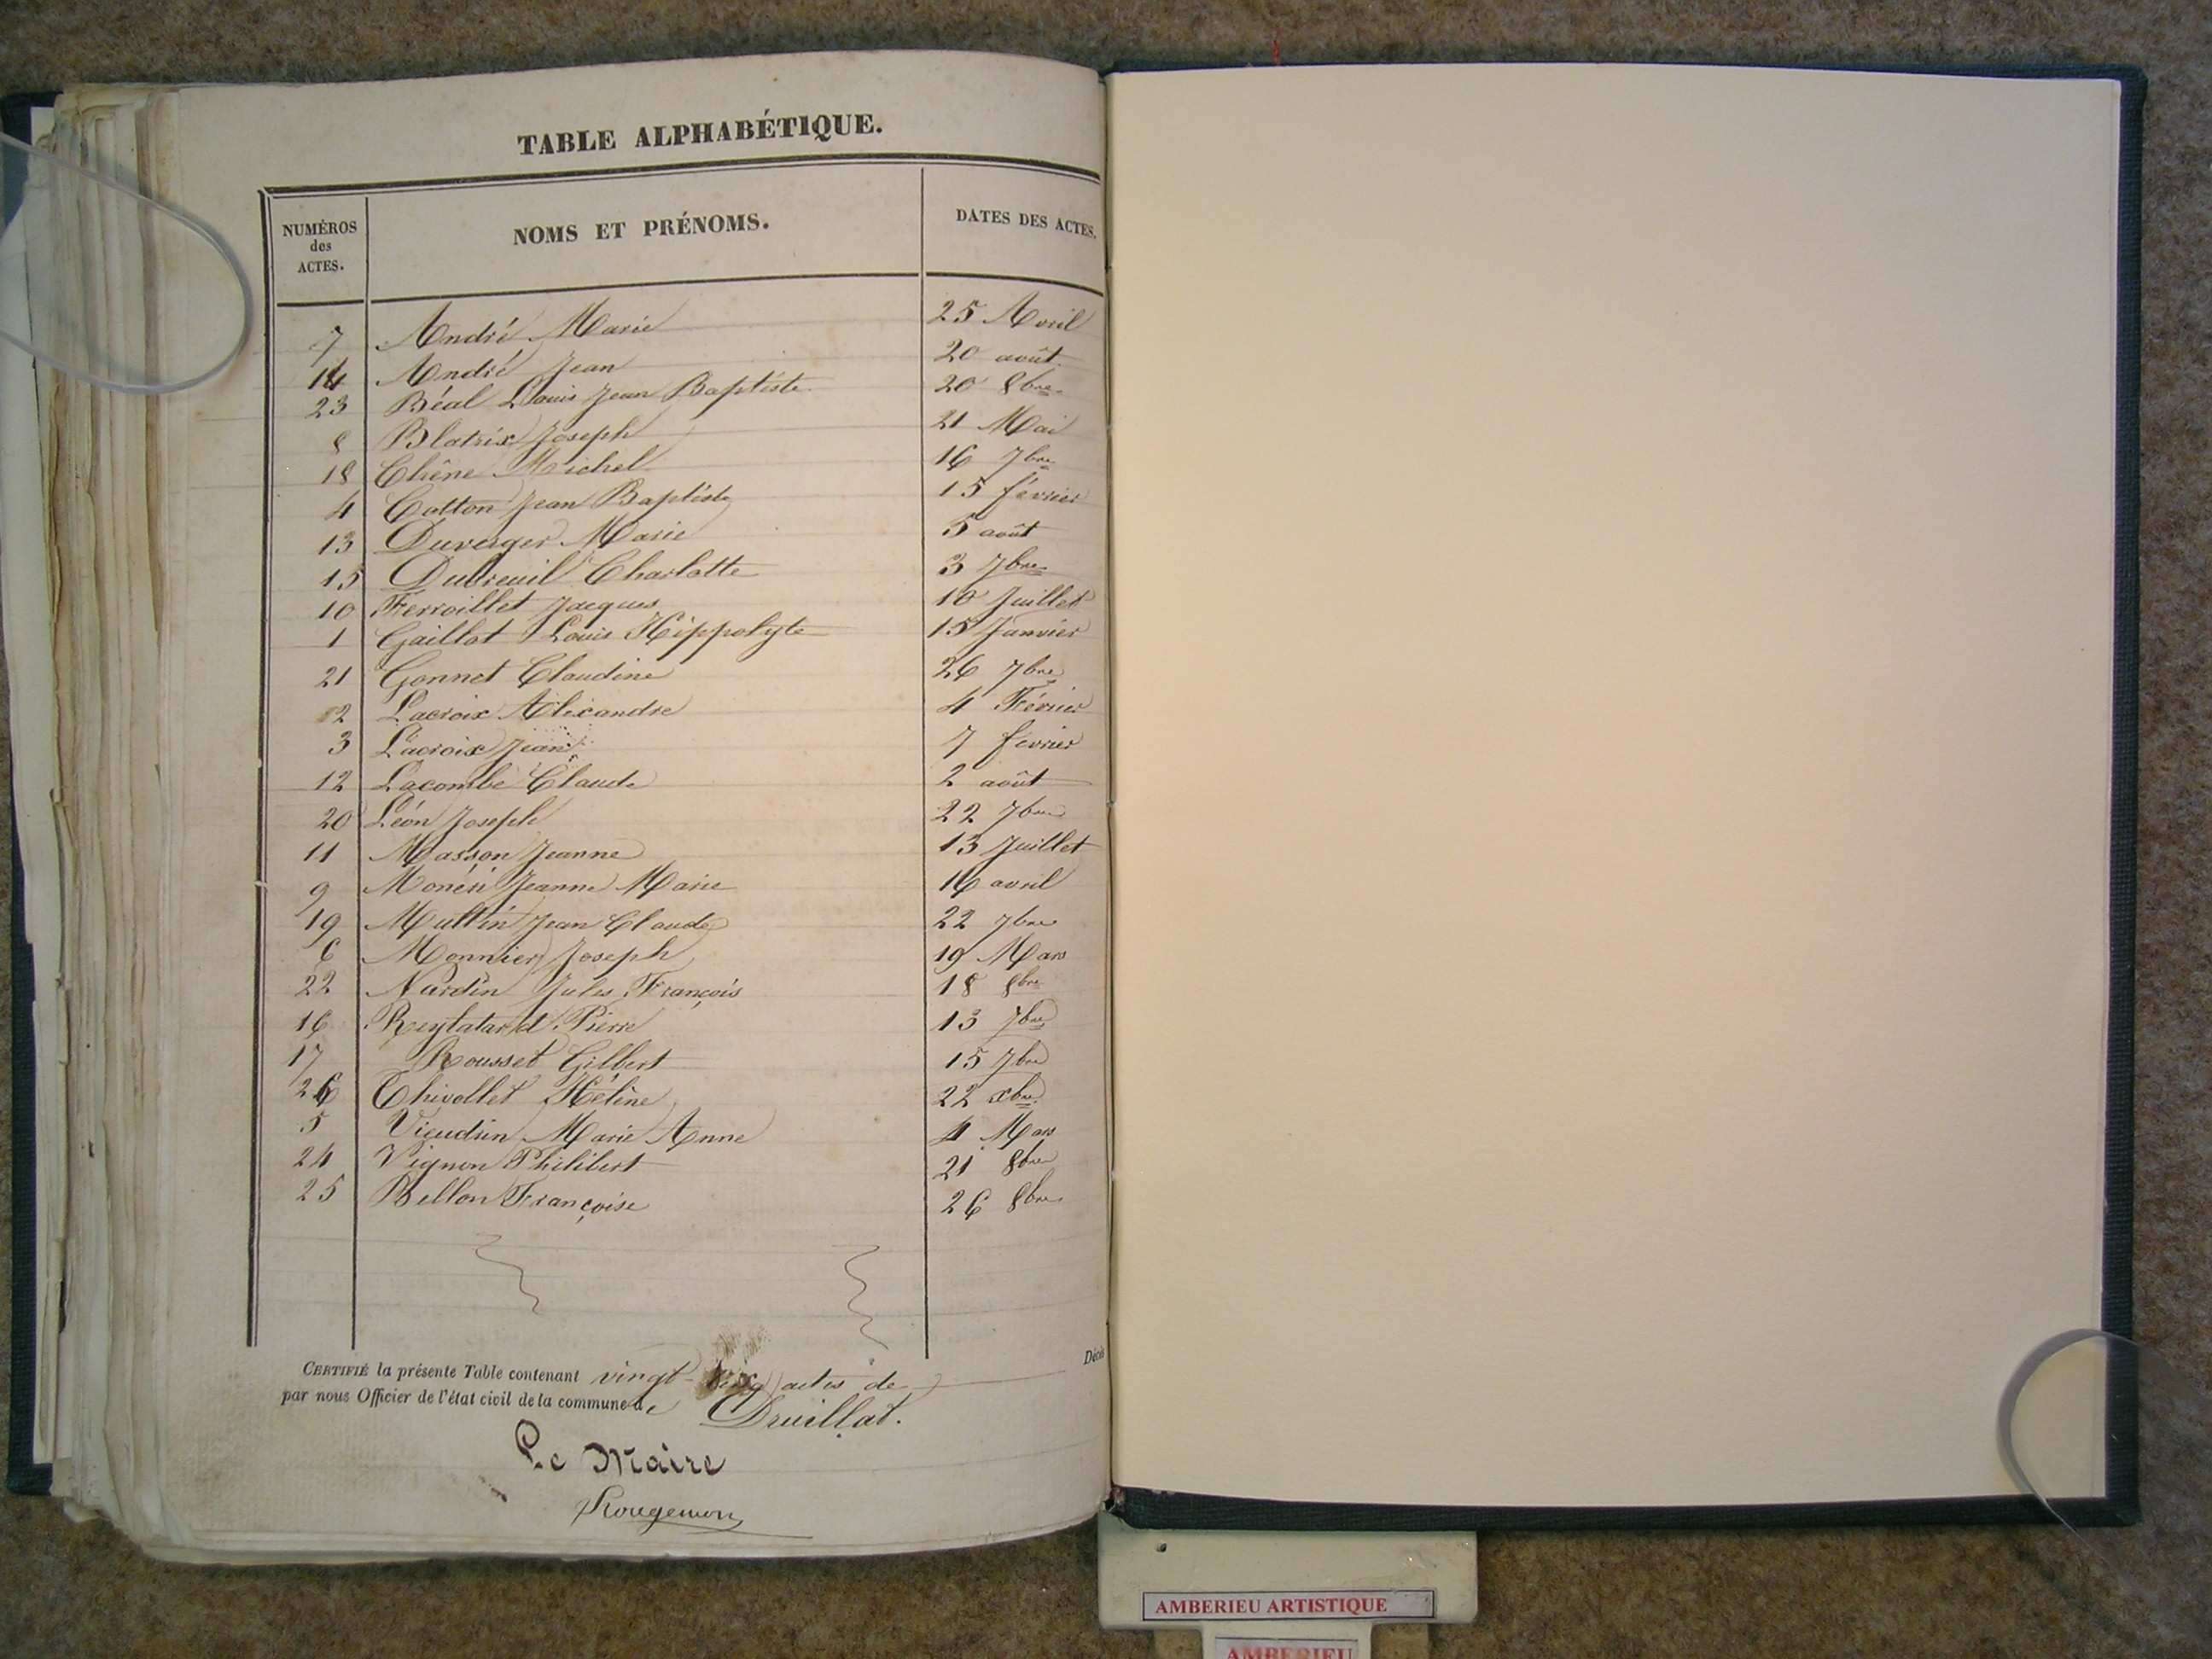 TABLE ALPHABÉTIQUE.
NUMÉROS des ACTES. NOMS ET PRÉNOMS. DATES DES ACTES.
7 André Marie 25 Avril
14 André Jean 20 août
23 Béal Louis Jean Baptiste 20 8bre
8 Blatrix Joseph 21 Mai
18 Chêne Michel 16 7bre
4 Cotton Jean Baptiste 15 février
13 Duverger Marie 5 août
15 Dubreuil Charlotte 3 7bre
10 Ferroillet Jacques 10 Juillet
1 Gaillot Louis Hippolyte 15 Janvier
21 Gonnet Claudine 26 7bre
2 Lacroix Alexandre 4 Février
3 Lacroix Jean 7 février
12 Lacombe Claude 2 août
20 Léon Joseph 22 7bre
11 Masson Jeanne 13 Juillet
9 Jeanne Marie 16 avril
19 Jean Claude 22 7bre
6 Monnier Joseph 19 Mars
22 Nardin Jules François 18 8bre
16 Pierre 13 7bre
17 Rousset Gilbert 15 7bre
26 Thivollet Hélène 22 xbre
5 Vieudrin Marie Anne 4 Mars
24 Vignon Philibert 21 8bre
25 Bellon Françoise 26 8bre
CERTIFIÉ la présente Table contenant vingt actes de Décès
par nous Officier de l'état civil de la commune de Druillat.
Le Maire
Rougemon
AMBERIEU ARTISTIQUE
AMBERIEU